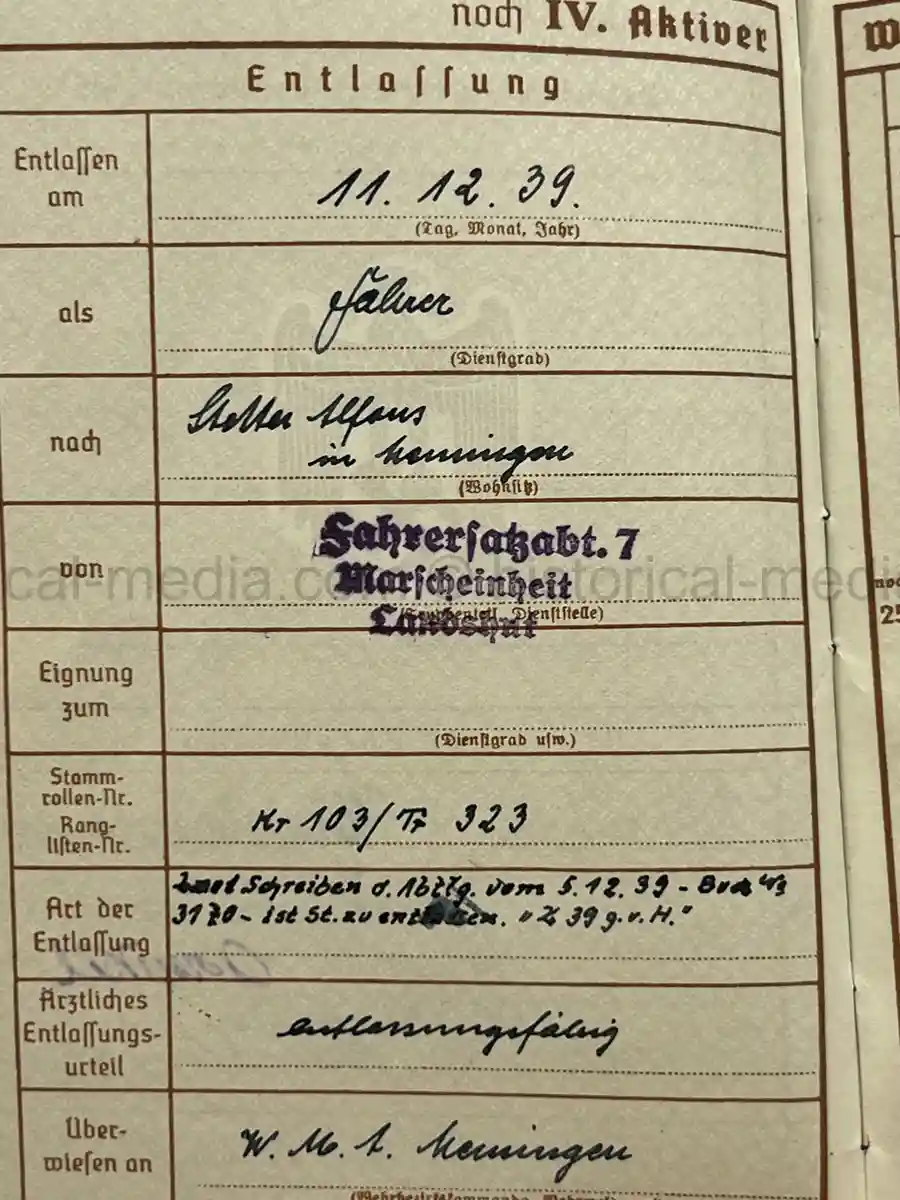 noch IV. Aktiver
W
Entlassung
Entlassen
am
11. 12. 39.
(Tag, Monat, Jahr)
als
Fahrer
(Dienstgrad)
nach
Stetter Alfons
in Memmingen
(Wohnsitz)
von
Fahrersatzabt. 7
Marscheinheit
Landshut
(Truppenteil, Dienststelle)
cal-media.co © historical-media
25
Eignung
zum
(Dienstgrad usw.)
Stamm-
rollen-Nr.
Rang-
listen-Nr.
Kr 103/Tr 323
Art der
Entlassung
Laut Schreiben d. Abtlg. vom 5.12.39 -
- ist St. zu entlassen. "Z 39 g.v.H."
Ärztliches
Entlassungs-
urteil
entlassungsfähig
Über-
wiesen an
W. M. A. Memmingen
(Wehrbezirkskommando,